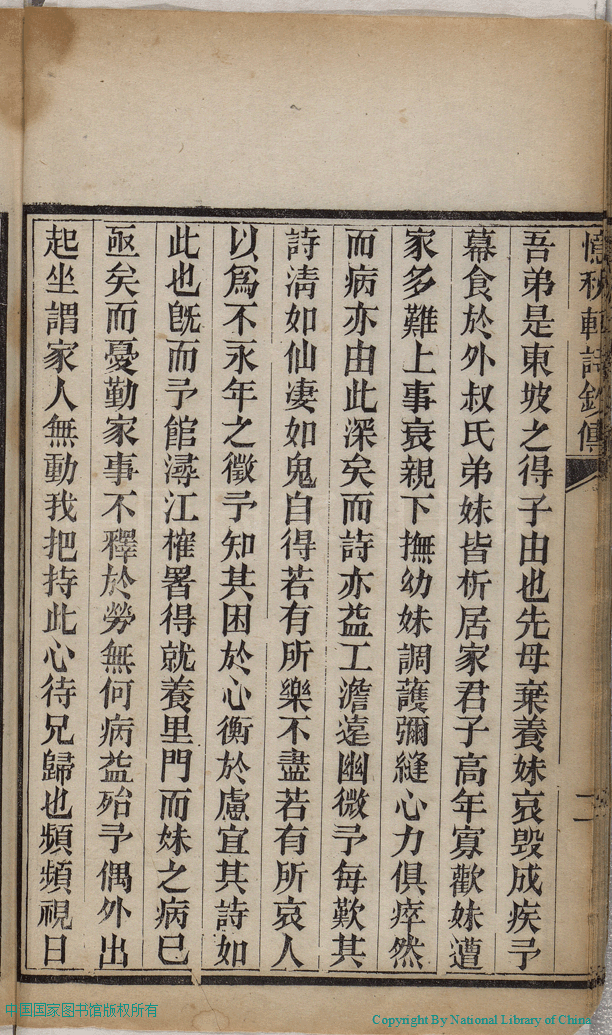 憶秋軒詩鈔傳
二
吾弟是東坡之得子由也先母棄養妹哀毀成疾予
幕食於外叔氏弟妹皆析居家君子高年寡歡妹遭
家多難上事哀親下撫幼妹調護彌縫心力俱瘁然
而病亦由此深矣而詩亦益工澹遠幽微予每歎其
詩清如仙凄如鬼自得若有所樂不盡若有所哀人
以爲不永年之徵予知其困於心衡於慮宜其詩如
此也旣而予館潯江榷署得就養里門而妹之病已
亟矣而憂勤家事不釋於勞無何病益殆予偶外出
起坐謂家人無動我把持此心待兄歸也頻頻視日
中国国家图书馆版权所有
Copyright By National Library of China